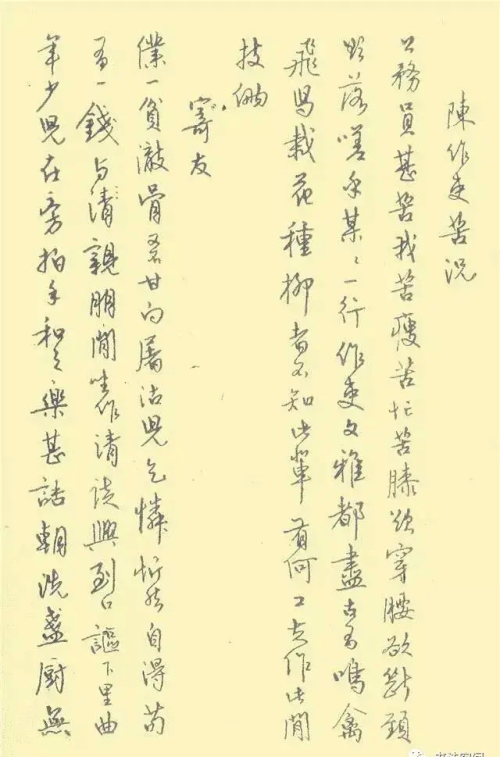 陳作吏苦況
公務員甚苦我苦瘦苦忙苦膝欲穿腰欲斷項
欲落嗟乎某〻一行作吏文雅都盡古有鳴禽
飛鳥栽花種柳者不知此輩有何工夫作此閒
技倆
寄友
僕一貧澈骨不甘向屠沽兒乞憐忻然自得苟
一錢与清親朋閒坐作清談興到口謳下里曲
年少兒在旁拍手和之樂甚詰朝洗盞廚無